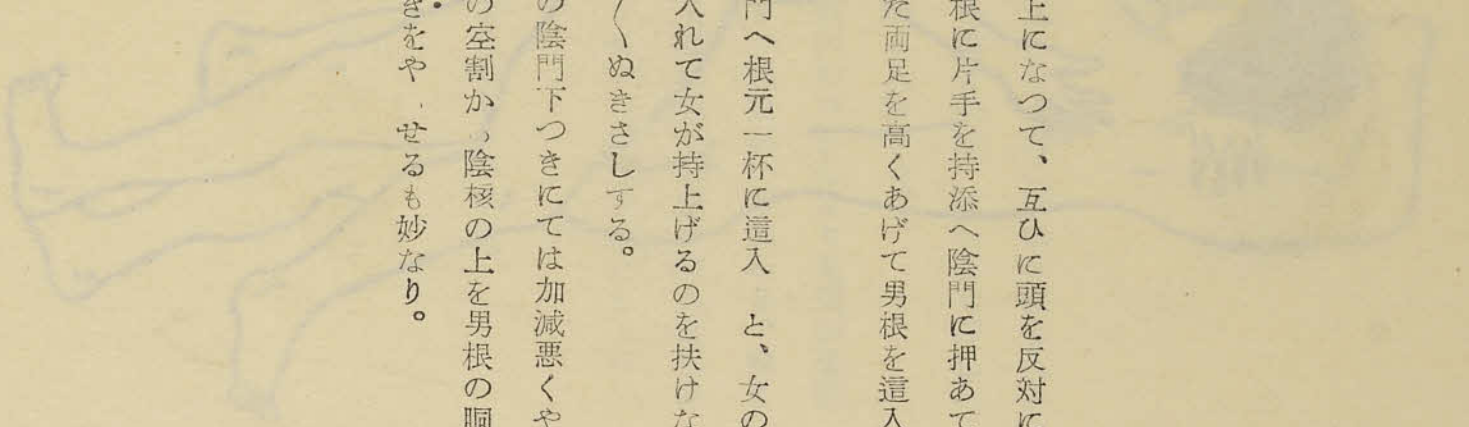 上になつて、互ひに頭を反対に
根に片手を持添へ陰門に押あて
た両足を高くあげて男根を這入
門へ根元一杯に這入 と、女の
入れて女が持上げるのを扶けな
〳〵ぬきさしする。
の陰門下つきにては加減悪くや
の空割か 陰核の上を男根の胴
きをや せるも妙なり。